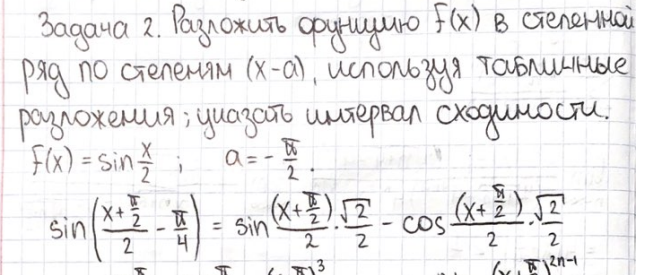 Задача 2. Разложить функцию f(x) в степенной
ряд по степеням (x-a), используя табличные
разложения; указать интервал сходимости.
f(x) = sin x/2 ; a = - π/2 .
sin((x+π/2)/2 - π/4) = sin (x+π/2)/2 · √2/2 - cos (x+π/2)/2 · √2/2